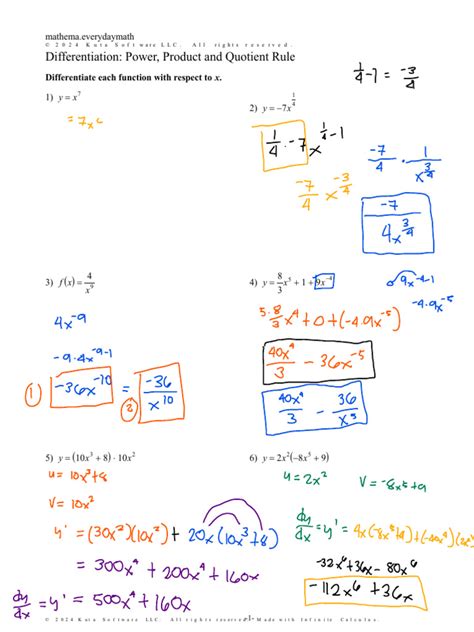 mathema.everydaymath
© 2024 Kuta Software LLC. All rights reserved.
Differentiation: Power, Product and Quotient Rule
Differentiate each function with respect to x.
1/4 - 1 = -3/4
1) y = x^7
= 7x^6
2) y = -7x^(1/4)
1/4 · -7x^(1/4 - 1)
-7/4 x^(-3/4)
-7/4 · 1/x^(3/4)
-7/(4x^(3/4))
3) f(x) = 4/x^9
4x^-9
-9·4x^(-9-1)
① -36x^-10 = ② -36/x^10
4) y = 8/3 x^5 + 1 + 9x^-4
9x^(-4-1)
-4·9x^-5
5·8/3 x^4 + 0 + (-4·9x^-5)
40x^4/3 - 36x^-5
40x^4/3 - 36/x^5
5) y = (10x^3 + 8) · 10x^2
u = 10x^3+8
v = 10x^2
y' = (30x^2)(10x^2) + 20x(10x^3+8)
= 300x^4 + 200x^4 + 160x
dy/dx = y' = 500x^4 + 160x
6) y = 2x^2(-8x^5 + 9)
u = 2x^2 v = -8x^5+9
dy/dx = y' = 4x(-8x^5+9)+(-40x^4)(2x^2)
-32x^6+36x-80x^6
-112x^6 + 36x
© 2024 Kuta Software LLC. All rights reserved. -1- Made with Infinite Calculus.